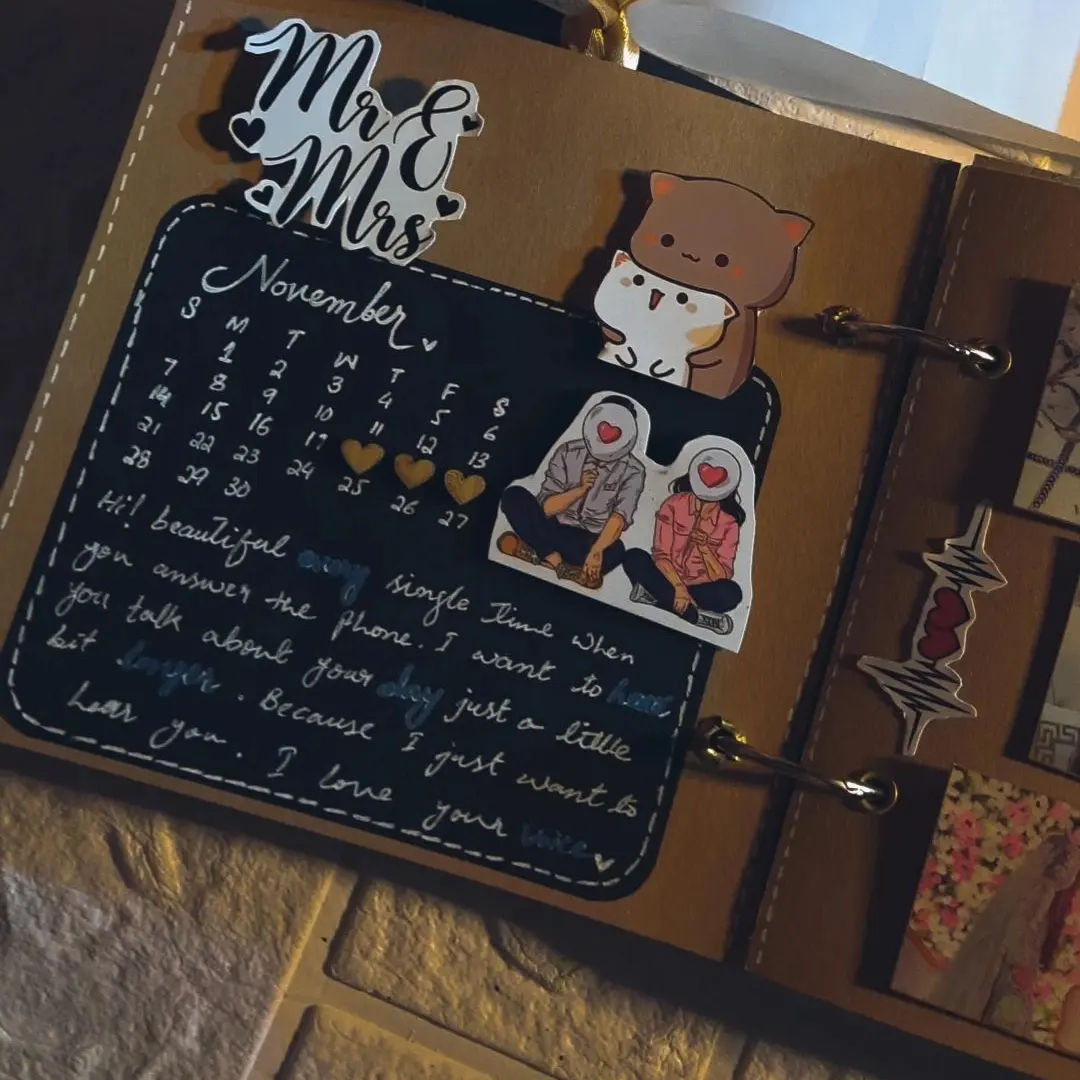 Mr &
Mrs
November
S M T W T F S
1 2 3 4 5 6
7 8 9 10 11 12 13
14 15 16 17
21 22 23 24 25 26 27
28 29 30
Hi! beautiful every single Time when
you answer the phone. I want to hear
you talk about your day just a little
bit longer. Because I just want to
hear you. I love your voice